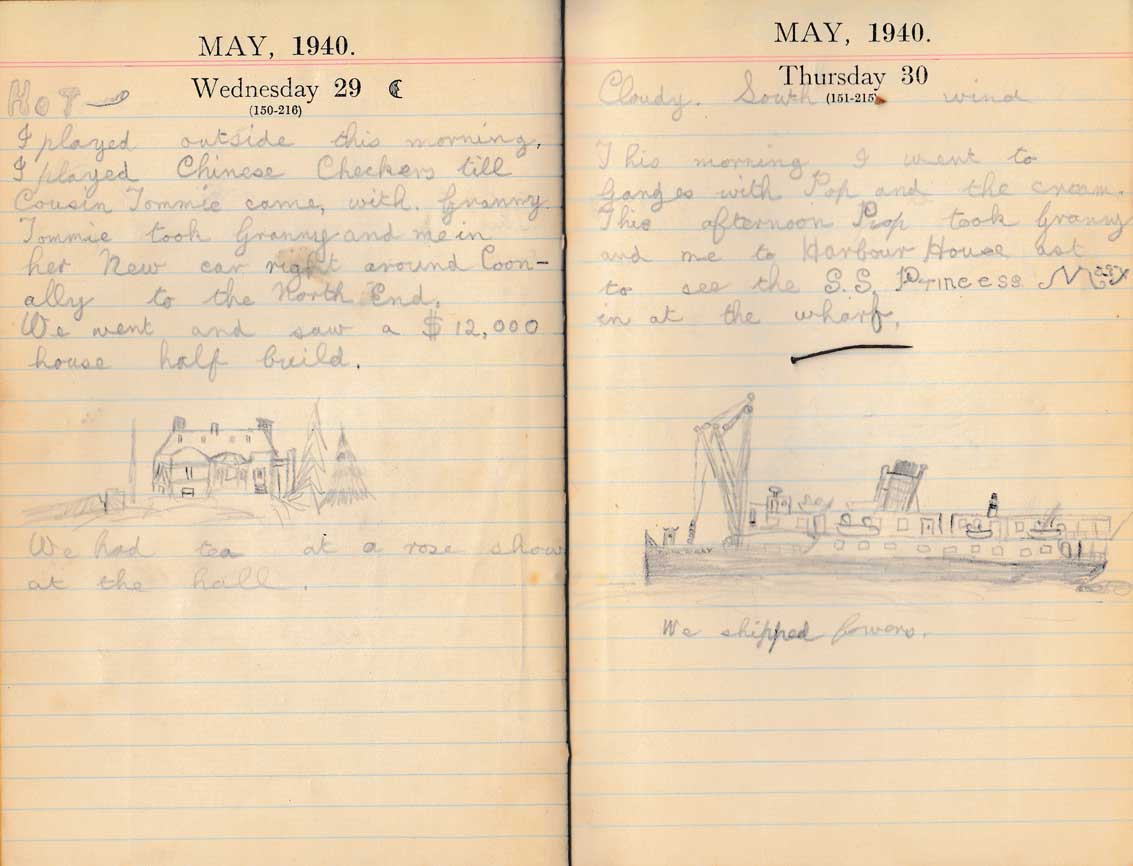 MAY, 1940.
Wednesday 29
(150-216)
HOT
I played outside this morning,
I played Chinese Checkers till
Cousin Tommie came, with. Granny.
Tommie took Granny and me in
her New car right around Coon-
ally to the North End.
We went and saw a $12,000
house half build.
We had tea at a rose show
at the hall.
MAY, 1940.
Thursday 30
(151-215)
Cloudy. South wind
This morning I went to
Ganges with Pop and the cream.
This afternoon Pop took Granny
and me to Harbour House
to see the S.S. Princess Mary
in at the wharf,
We shipped fowers.